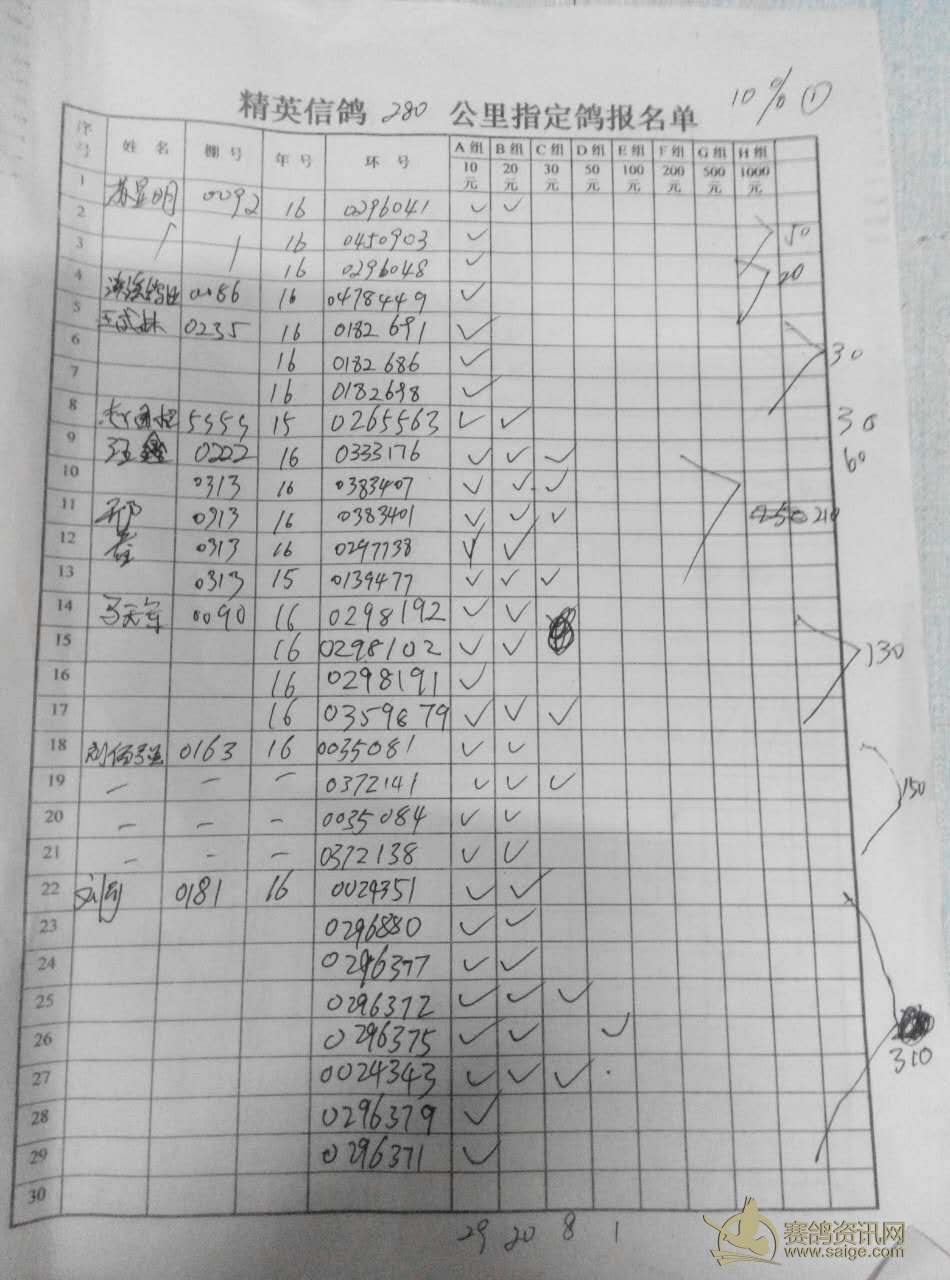 10% ①
精英信鸽 280 公里指定鸽报名单
序号 姓名 棚号 年号 环号 A组 10元 B组 20元 C组 30元 D组 50元 E组 100元 F组 200元 G组 500元 H组 1000元
1 苏显明 0092 16 0296041 ✓ ✓
2 16 0450903 ✓ 50
3 16 0296048 ✓
4 0086 16 0478449 ✓ 20
5 0235 16 0182691 ✓
6 16 0182686 ✓ 30
7 16 0182698 ✓
8 5555 15 0265563 ✓ ✓ 30
9 0202 16 0333176 ✓ ✓ ✓ 60
10 0313 16 0383407 ✓ ✓ ✓
11 0313 16 0383401 ✓ ✓ ✓ 210
12 0313 16 0297738 ✓ ✓
13 0313 15 0139477 ✓ ✓ ✓
14 0090 16 0298192 ✓ ✓
15 16 0298102 ✓ ✓ 130
16 16 0298191 ✓
17 16 0359879 ✓ ✓ ✓
18 0163 16 0035081 ✓ ✓
19 – – – 0372141 ✓ ✓ ✓ 150
20 – – – 0035084 ✓ ✓
21 – – – 0372138 ✓ ✓
22 0181 16 0024351 ✓ ✓
23 0296880 ✓ ✓
24 0296377 ✓ ✓
25 0296372 ✓ ✓ ✓
26 0296375 ✓ ✓ ✓
310
27 0024343 ✓ ✓ ✓
28 0296379 ✓
29 0296371 ✓
30
29 20 8 1
赛鸽资讯网
www.saige.com